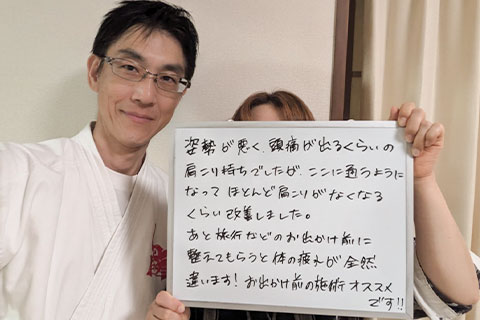 姿勢が悪く、頭痛が出るくらいの
肩こり持ちでしたが、ここに通うように
なってほとんど肩こりがなくなる
くらい改善しました。
あと旅行などのお出かけ前に
整えてもらうと体の疲れが全然
違います！お出かけ前の施術オススメ
です!!